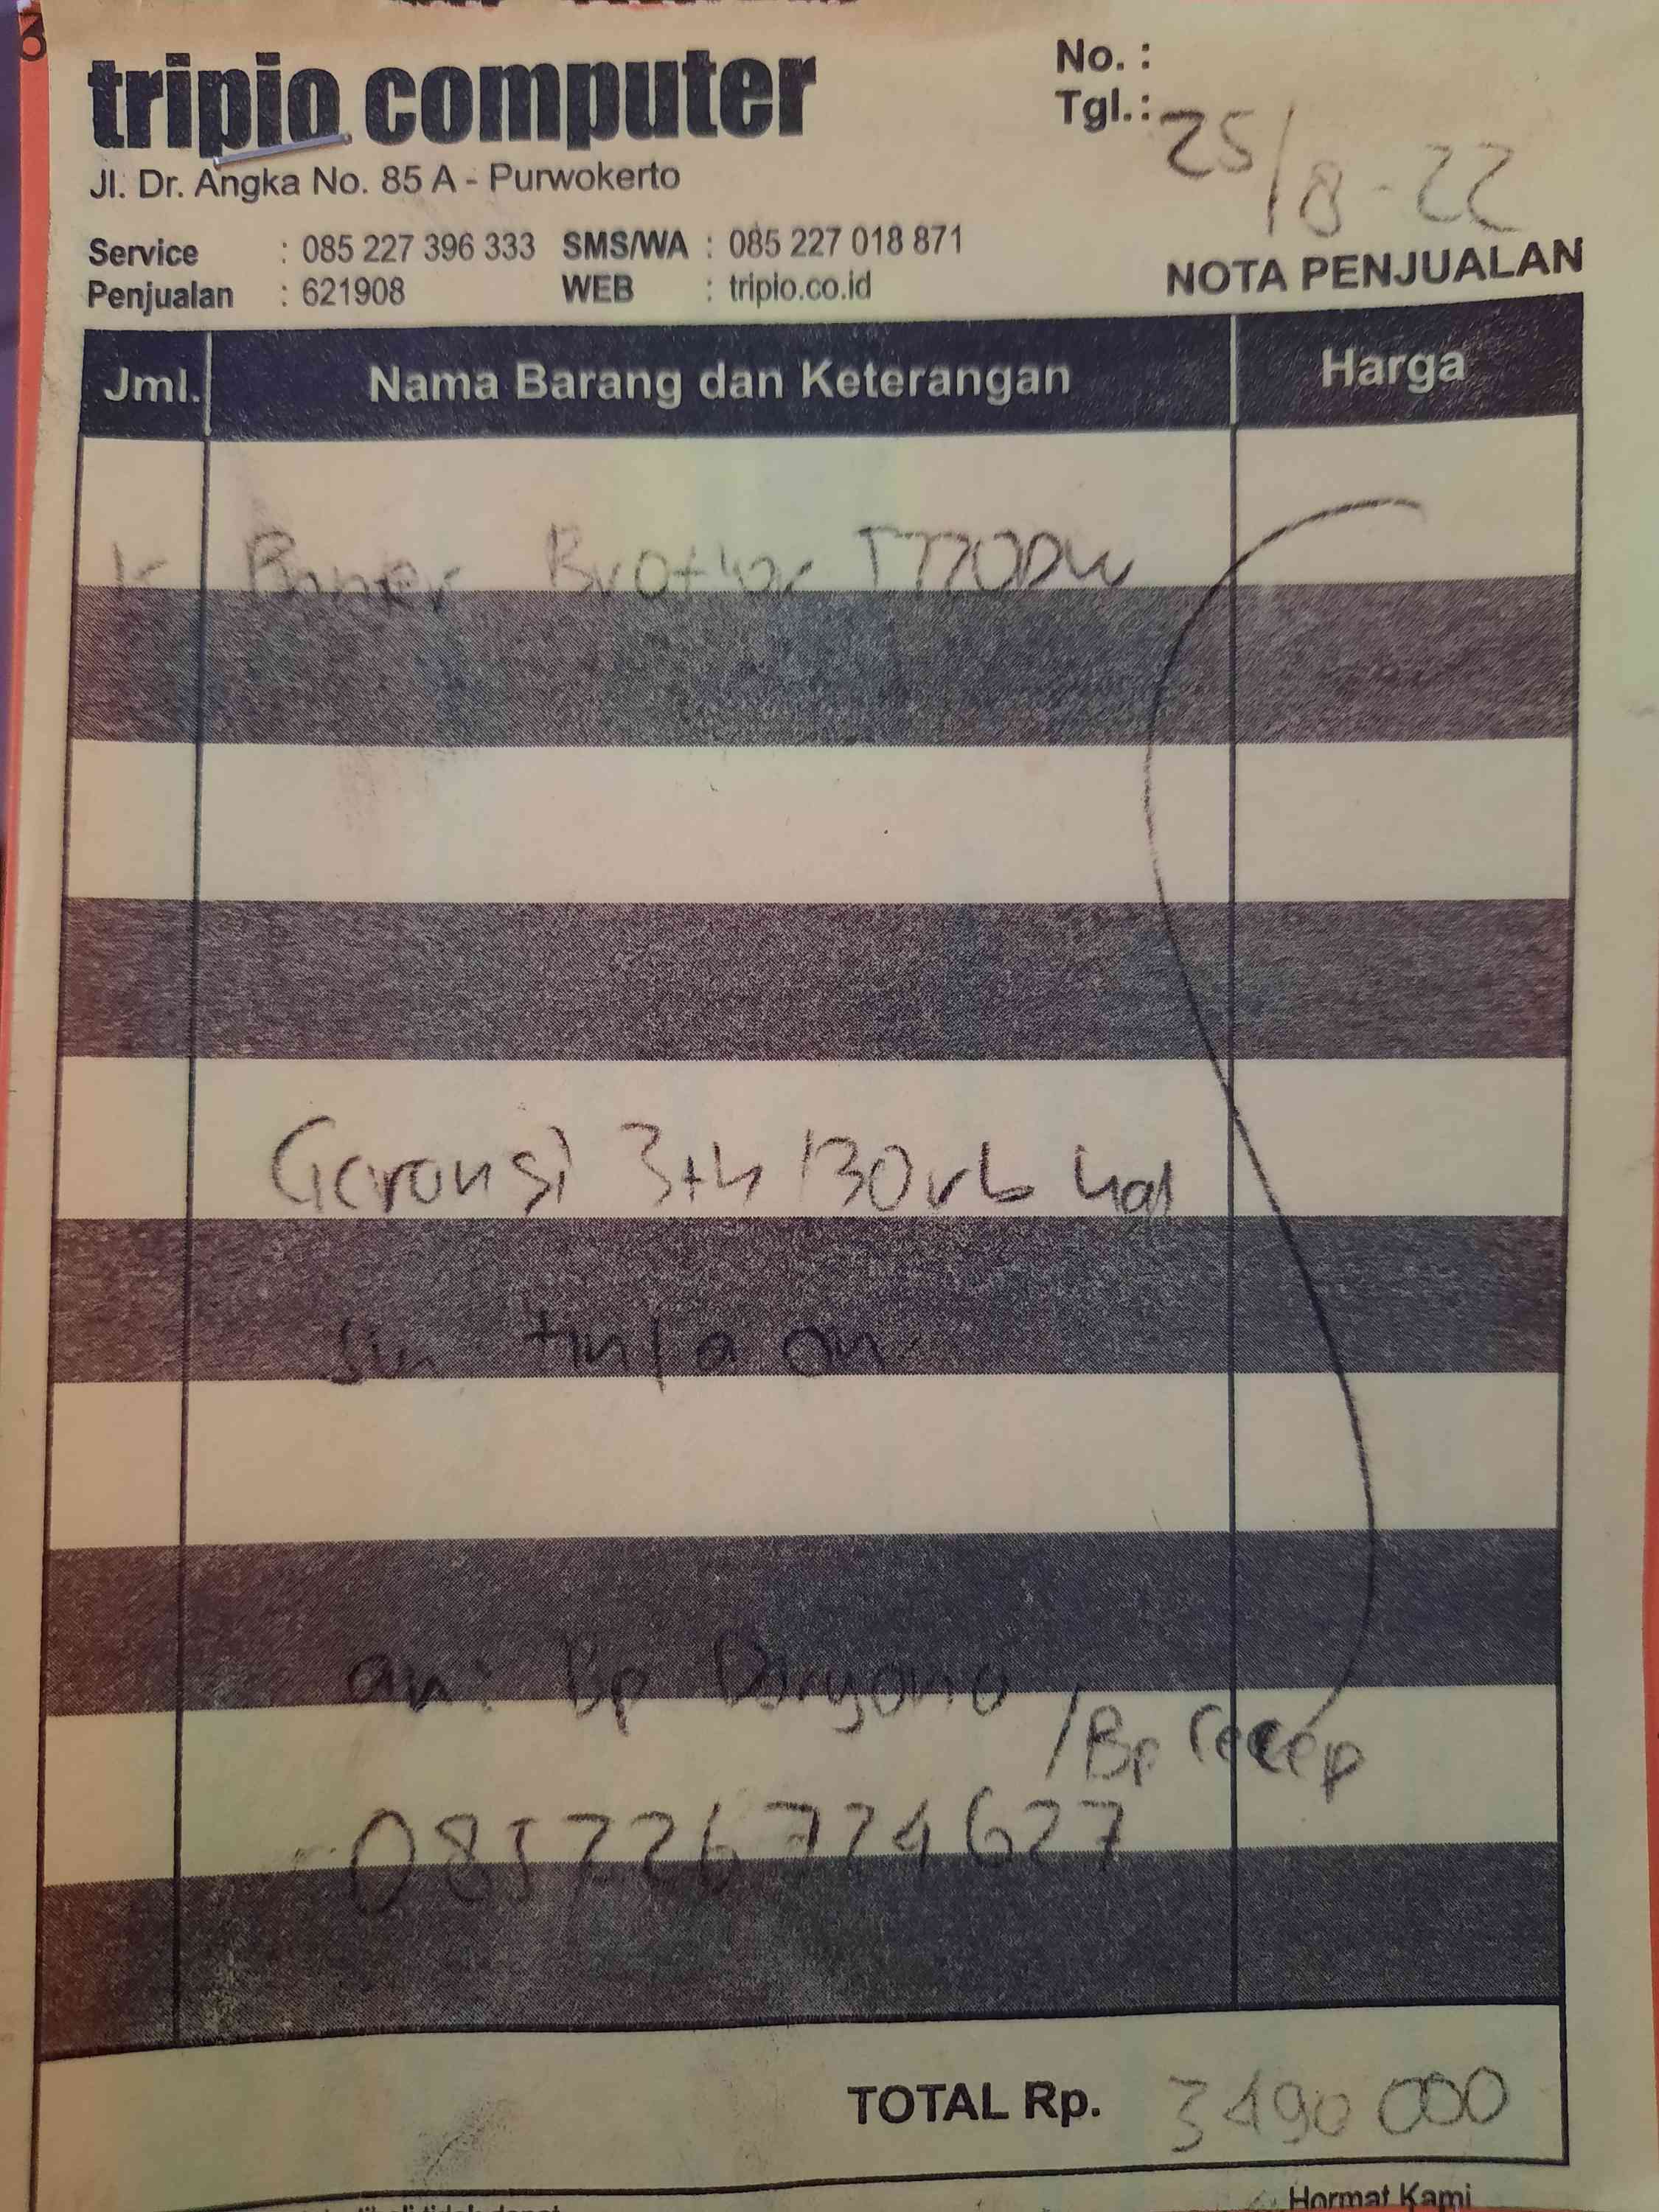 tripio computer
Jl. Dr. Angka No. 85 A - Purwokerto
Service : 085 227 396 333 SMS/WA : 085 227 018 871
Penjualan : 621908 WEB : tripio.co.id
No. :
Tgl.: 25/8-22
NOTA PENJUALAN
Jml. Nama Barang dan Keterangan Harga
1 Brother T720DW
Garansi 3th 130rb hal
tinta ori
an: Bp Daryono
/Bp Cecep
085226724627
TOTAL Rp. 3490 000
Hormat Kami